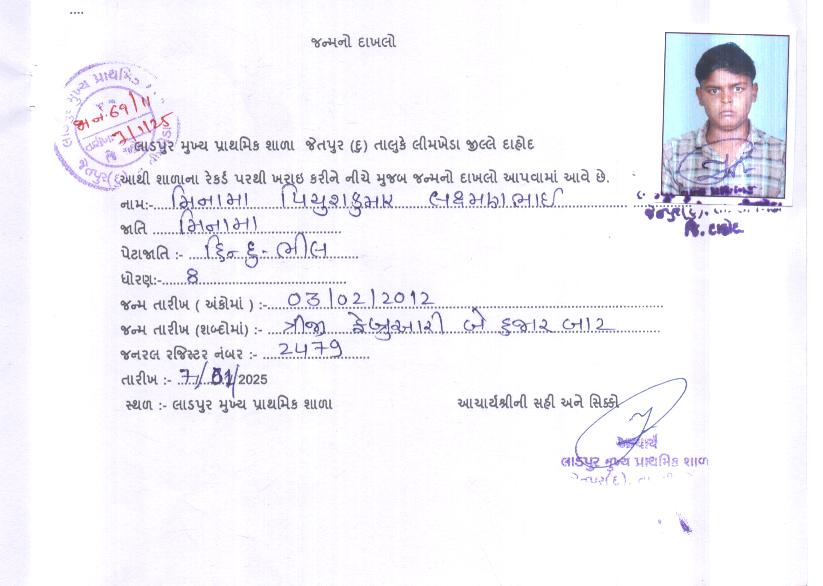 જન્મનો દાખલો
લાડપુર મુખ્ય પ્રાથમિ
જા.નં. 69/11
તારીખ 7/1/25
લાડપુર મુખ્ય પ્રાથમિક શાળા જેતપુર (દુ) તાલુકે લીમખેડા જીલ્લે દાહોદ
આથી શાળાના રેકર્ડ પરથી ખરાઇ કરીને નીચે મુજબ જન્મનો દાખલો આપવામાં આવે છે.
નામ:- મિનામા પિયુશકુમાર લક્ષ્મણભાઈ
જાતિ મિનામા
પેટાજાતિ :- હિન્દુ - ભીલ
ધોરણ:- 8
જન્મ તારીખ ( અંકોમાં ) :- 03/02/2012
જન્મ તારીખ (શબ્દોમાં) :- ત્રીજી ફેબ્રુઆરી બે હજાર બાર
જનરલ રજિસ્ટર નંબર :- 2479
તારીખ :- 7/01/2025
સ્થળ :- લાડપુર મુખ્ય પ્રાથમિક શાળા
આચાર્યશ્રીની સહી અને સિક્કો
આચાર્ય
લાડપુર મુખ્ય પ્રાથમિક શાળ
જેતપુર(દુ).
જેતપુર(દુ).
જિ. દાહોદ